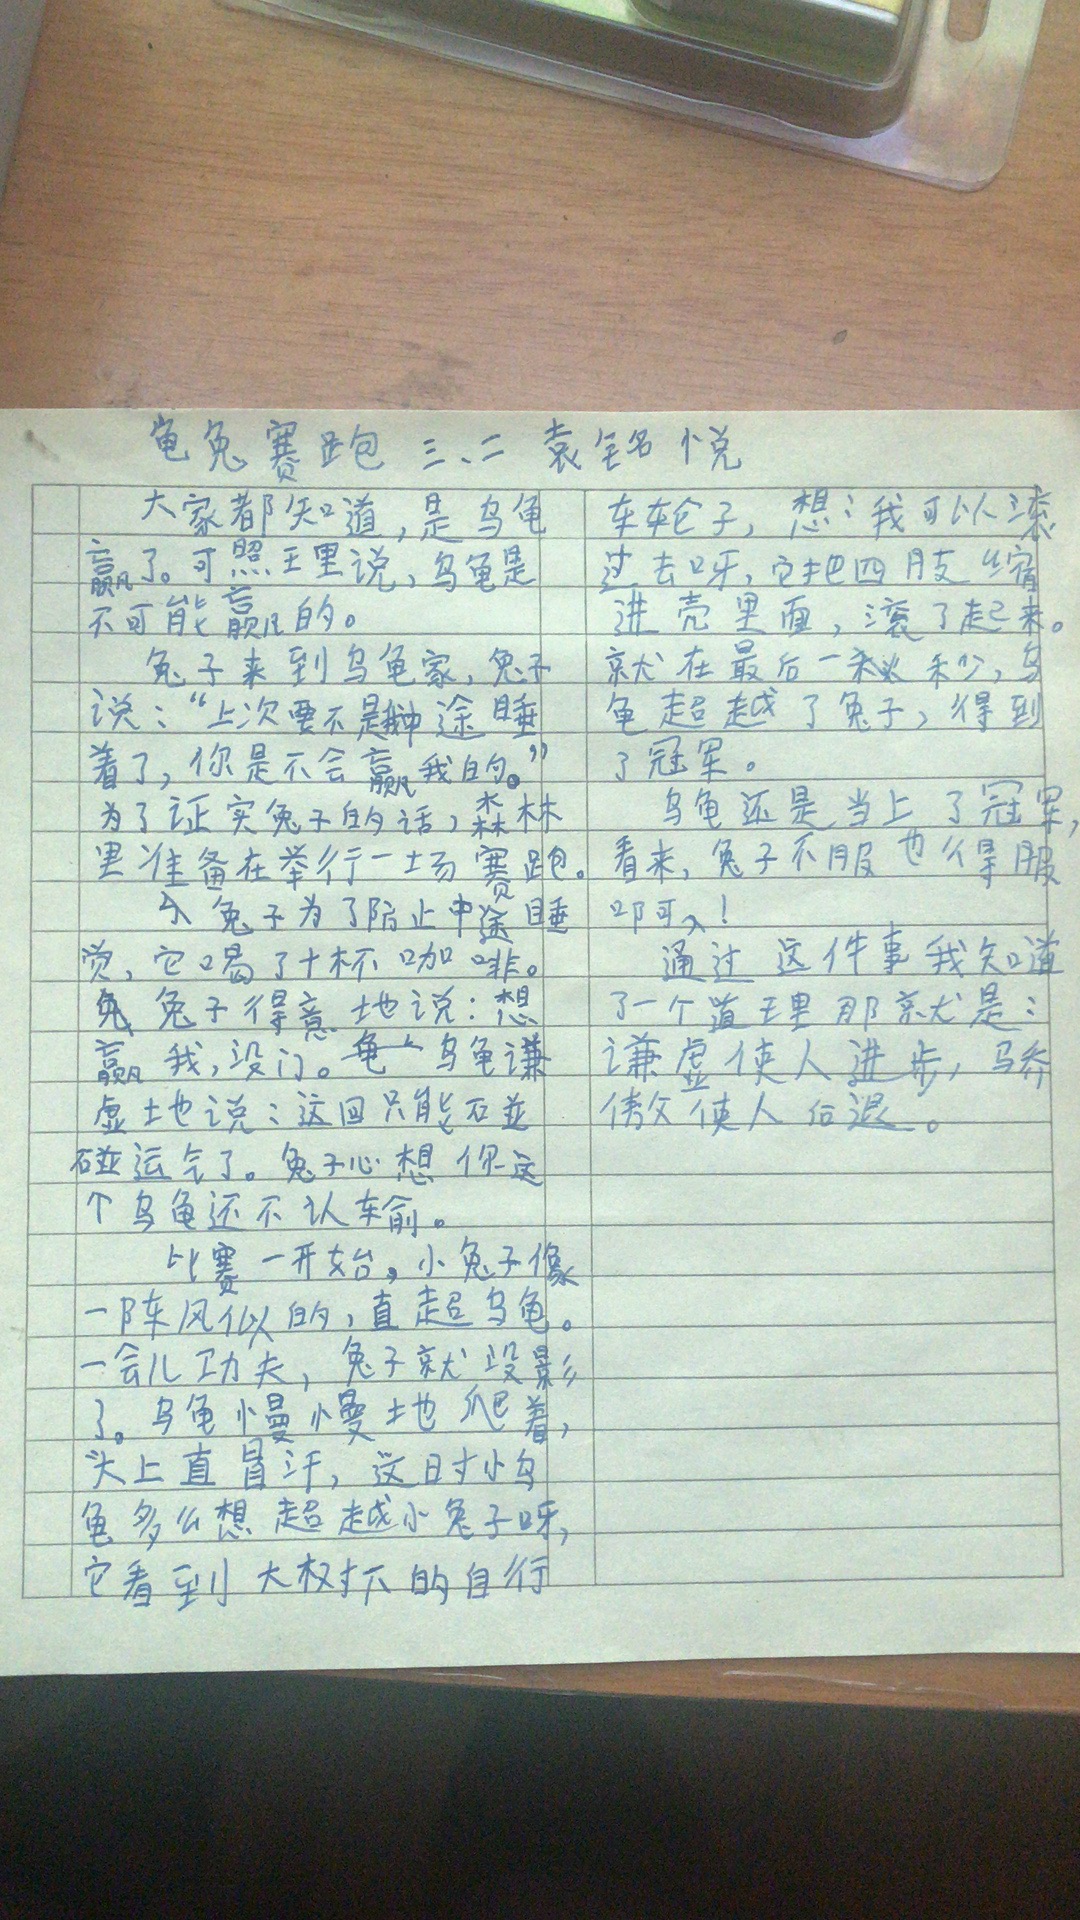 龟兔赛跑 三、二 袁铭悦
大家都知道，是乌龟
赢了。可照王里说，乌龟是
不可能赢的。
兔子来到乌龟家，兔子
说：“上次要不是我中途睡
着了，你是不会赢我的。”
为了证实兔子的话，森林
里准备在举行一场赛跑。
兔子为了防止中途睡
觉，它喝了十杯咖啡。
兔子得意地说：想
赢我，没门。乌龟谦
虚地说：这回只能碰
碰运气了。兔子心想你这
个乌龟还不认输。
比赛一开始，小兔子像
一阵风似的，直超乌龟。
一会儿工功夫，兔子就没影
了。乌龟慢慢地爬着，
头上直冒汗，这时小乌
龟多么想超越小兔子呀，
它看到大树下的自行
车轮子，想：我可以滚
过去呀，它把四肢缩
进壳里面，滚了起来。
就在最后一秒，乌
龟超越了兔子，得到
了冠军。
乌龟还是当上了冠军，
看来，兔子不服也得服
啊！
通过这件事我知道
了一个道理那就是：
谦虚使人进步，骄
傲使人后退。